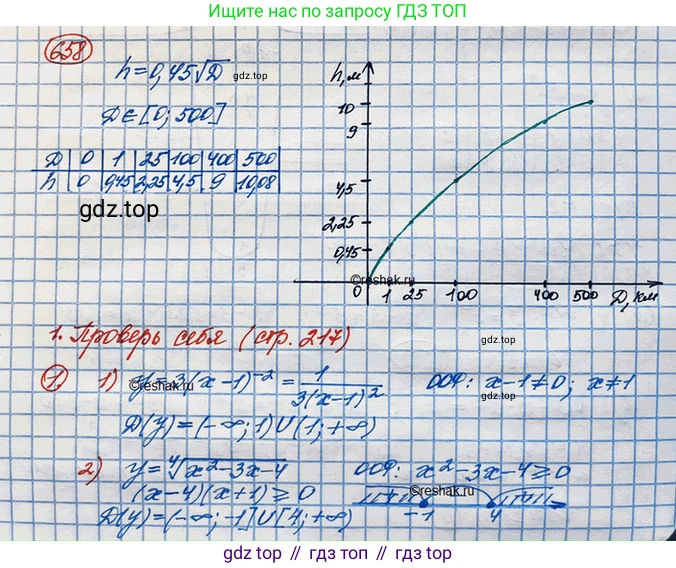 Ищите по запросу ГДЗ ТОП
658
h = 0,45√D
gdz.top
D ∈ [0; 500]
D 0 1 25 100 400 500
h 0 0,45 2,25 4,5 9 10,08
gdz.top
h, м
10
9
4,5
2,25
0,45
©reshak.ru
0 1 25 100 400 500 D, км
1. Проверь себя (стр. 217)
gdz.top
1. 1) y = 3(x-1)⁻² = 1/3(x-1)² ООФ: x-1≠0; x≠1
©reshak.ru
gdz.top
D(y) = (-∞; 1)∪(1; +∞)
2) y = ⁴√x²-3x-4 ООФ: x²-3x-4≥0
(x-4)(x+1) ≥ 0
©reshak.ru
-1 4
D(y) = (-∞; -1]∪[4; +∞)
gdz.top // гдз.топ // gdz.top